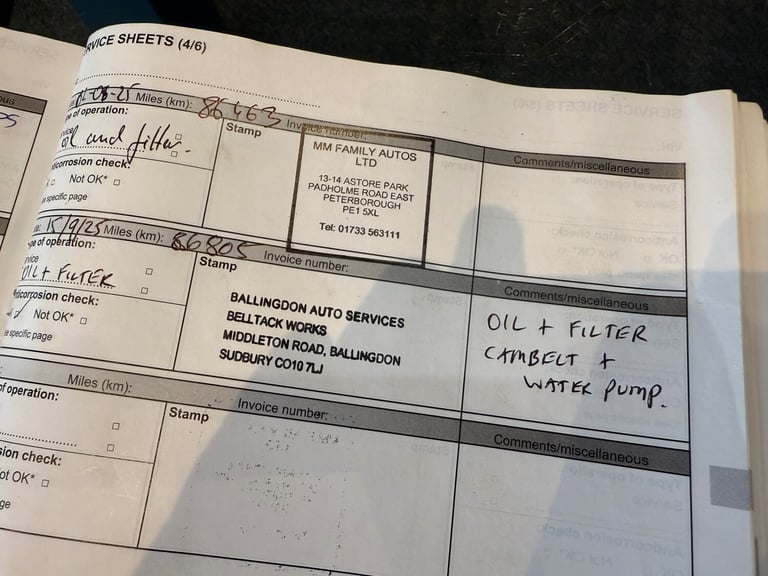 RVICE SHEETS (4/6)
-08-25 Miles (km): 86463
pe of operation:
Stamp
Invoice number:
Comments/miscellaneous
oil and filter.
MM FAMILY AUTOS
LTD
13-14 ASTORE PARK
PADHOLME ROAD EAST
PETERBOROUGH
PE1 5XL
Tel: 01733 563111
ticorrosion check:
Not OK*
e specific page
15/9/25 Miles (km): 86805
pe of operation:
Stamp
Invoice number:
Comments/miscellaneous
OIL + FILTER
BALLINGDON AUTO SERVICES
BELLTACK WORKS
MIDDLETON ROAD, BALLINGDON
SUDBURY CO10 7LJ
OIL + FILTER
CAMBELT +
WATER PUMP.
ticorrosion check:
Not OK*
e specific page
Miles (km):
of operation:
Stamp
Invoice number:
Comments/miscellaneous
sion check:
ot OK*
ge